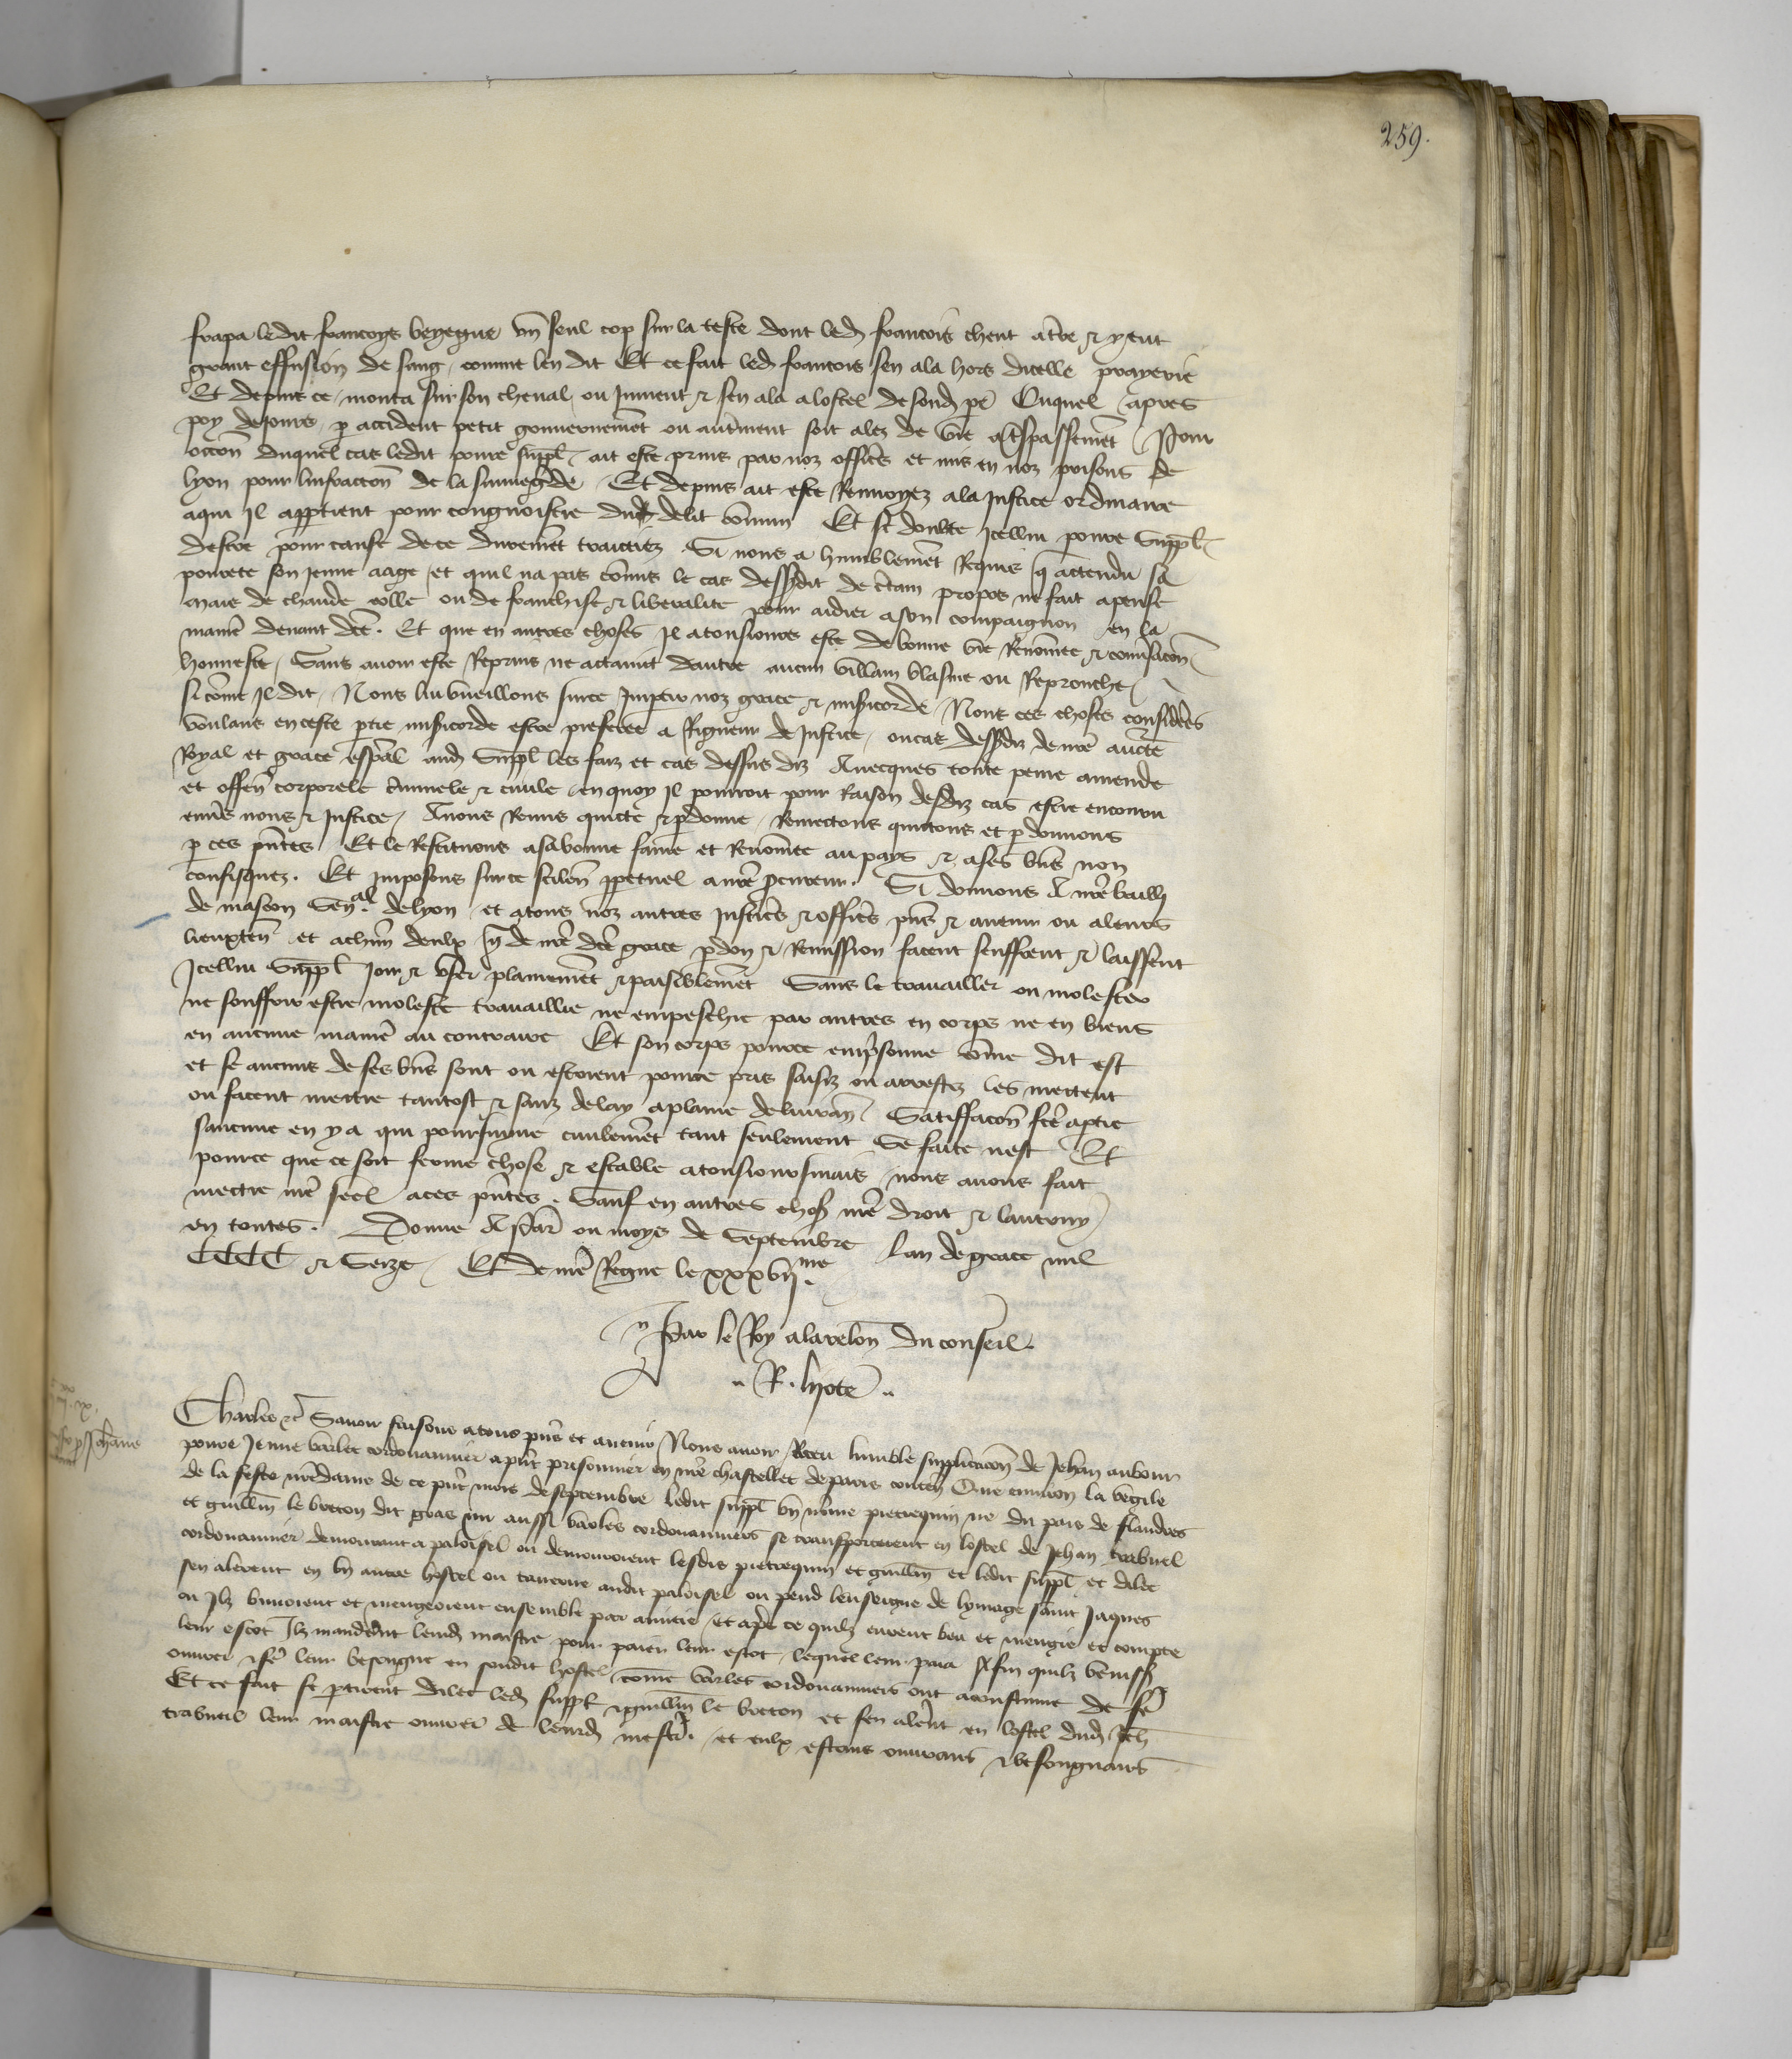 259.
frapa ledit francoys beyegue vn seul cop sur la teste dont led francois cheut a tre & y eut
grant effusion de sang comme len dit Et ce fait led francois sen ala hors dicelle prayerie
Et depuis ce monta sur son cheual ou Jument & sen ala a lostel de sond pe Ouquel apres
poy de Jours p accident petit gouuernemet ou autment soit alez de vie a tspassemet Pour
occon duquel cas ledit poure suppl ait este prins par noz offices et mis en noz prisons de
lyon pour linfraccon de la sauuegde Et depuis ait este Renuoyez ala Justice ordinaire
aqui Il apptient pour congnoistre dud delit comun Et se doubte Icellui poure Suppl
destre pour cause de ce durement traictiez Si nous a humblemet Requis q attendu sa
pourete son Jeune aage et quil na pas comis le cas dessusdit de ctain propos ne fait apense
maiz de chaude colle ou de franchise & liberalite pour aidier a son compaignon en la
manie deuant dce. Et que en autres choses Il a tousiours este de bonne vie Renomee & conusacon
honneste Sans auoir este Reprins ne actaint dautre aucun villain blasme ou Reprouche
si come Il dit Nous lui vueillons sur ce Impartir noz grace & misicorde Nous ces choses consideres
voulans en ceste ptie misicorde estre preferee a Rigueur de Justice ou cas dessusdiz de nre aucte
Royal et grace espal aud Suppl les faiz et cas dessus diz Auecques toute peine amende
et offen corporele criminele & ciuile en quoy Il pourroit pour Raison desdiz cas estre encouru
enuers nous & Justice Auons Remis quicte & pdonne Remectons quictons et pdonnons
p ces pntes Et le Restituons a sa bonne fame et Renomee au pays & a ses biens non
confisquez. Et Imposons sur ce silen ppetuel a nre pcureur. Si donnons A nre baill
de mascon Senal. de lyon et a tous noz autres Justicies & officies pns & auenir ou a leurs
lieuxten et a chun deulx q de nre dce grace pdon & Remission facent seuffrent & laissent
Icellui Suppl Joir & vser plainemet & paisiblemet Sans le trauailler ou molester
ne souffrir estre moleste trauaillie ne empeschie par autres en corps ne en biens
en aucune manie au contraire Et son corps pource emprisonne come dit est
et se aucuns de ses biens sont ou estoient pource pris saisiz ou arrestez les mectent
ou facent mectre tantost & sanz delay a plaine deliuran Satiffacon fce a ptie
saucune en y a qui poursuiue ciuilement tant seulement Se faite nest Et
pource que ce soit ferme chose & estable a tousioursmais nous auons fait
mectre nre seel a ces pntes. Sauf en autres chos nre droit & lautruy
en toutes. Donne A Par ou moys de Septembre lan de grace mil
CCCC & Seize Et de nre Regne le xxxvijme.
Par le Roy a la relon du conseil.
R. hote
Charles &c Sauoir faisons a tous pns et auenir Nous auoir Receu humble supplicacon de Jehan aubour
poure Jeune varlet cordouannier a pnt prisonnier en nre chastellet de paris conten Que enuiron la vegile
de la feste nredame de ce pnt mois de septembre ledit suppl vn nome pietrequin ne du pais de flandres
et guillm le breton dit gras aussi varles cordouanniers se transporterent en lostel de Jehan trabuel
cordouannier demourant a paloisel ou demouroient lesdis pietrequin et guillm et ledit suppl et dilec
sen alerent en vn autre hostel ou tauerne audit paloisel ou pend lenseigne de lymage saint Jaques
ou Ilz buuoient et mengeoient ensemble par amitie et apres ce quilz eurent beu et mengie et compte
leur escot Ilz manderent leurd maistre pour paier leur escot lequel leur paia Afin quilz venissent
ouurer & fe leur besongne en sondit hostel come varles cordouanniers ont acoustume de fe
Et ce fait se ptirent dilec led suppl & guillm le breton et sen alerent en lostel dud Jeh
trabuel leur maistre ouurer de leurd mestr. et eulx estans ouurans & besongnans